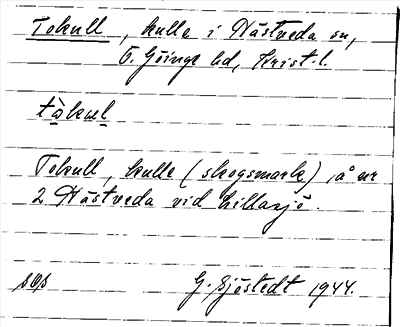 Tokull, kulle i Nästveda sn,
Ö. Göinge hd, Krist. l.
tòkul
Tokull, kulle (skogsmark) å nr
2 Nästveda vid Lillasjö.
sos
G. Sjöstedt 1944.